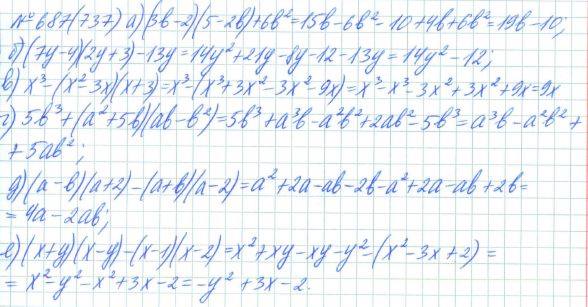 № 687(737) а) (3в-2)(5-2в)+6в²=15в-6в²-10+4в+6в²=19в-10;
б) (7y-4)(2y+3)-13y=14y²+21y-8y-12-13y=14y²-12;
в) x³-(x²-3x)(x+3)=x³-(x³+3x²-3x²-9x)=x³-x³-3x²+3x²+9x=9x
г) 5в³+(a²+5в)(aв-в²)=5в³+a³в-a²в²+2aв²-5в³=a³в-a²в²+
+5aв²;
д) (a-в)(a+2)-(a+в)(a-2)=a²+2a-aв-2в-a²+2a-aв+2в=
=4a-2aв;
е) (x+y)(x-y)-(x-1)(x-2)=x²+xy-xy-y²-(x²-3x+2)=
=x²-y²-x²+3x-2=-y²+3x-2.